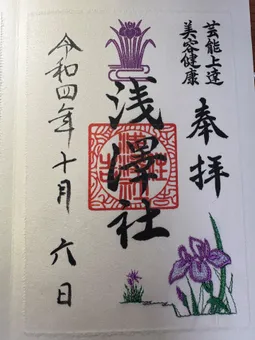 奉拝
芸能上達
美容健康
浅澤社
令和四年十月六日